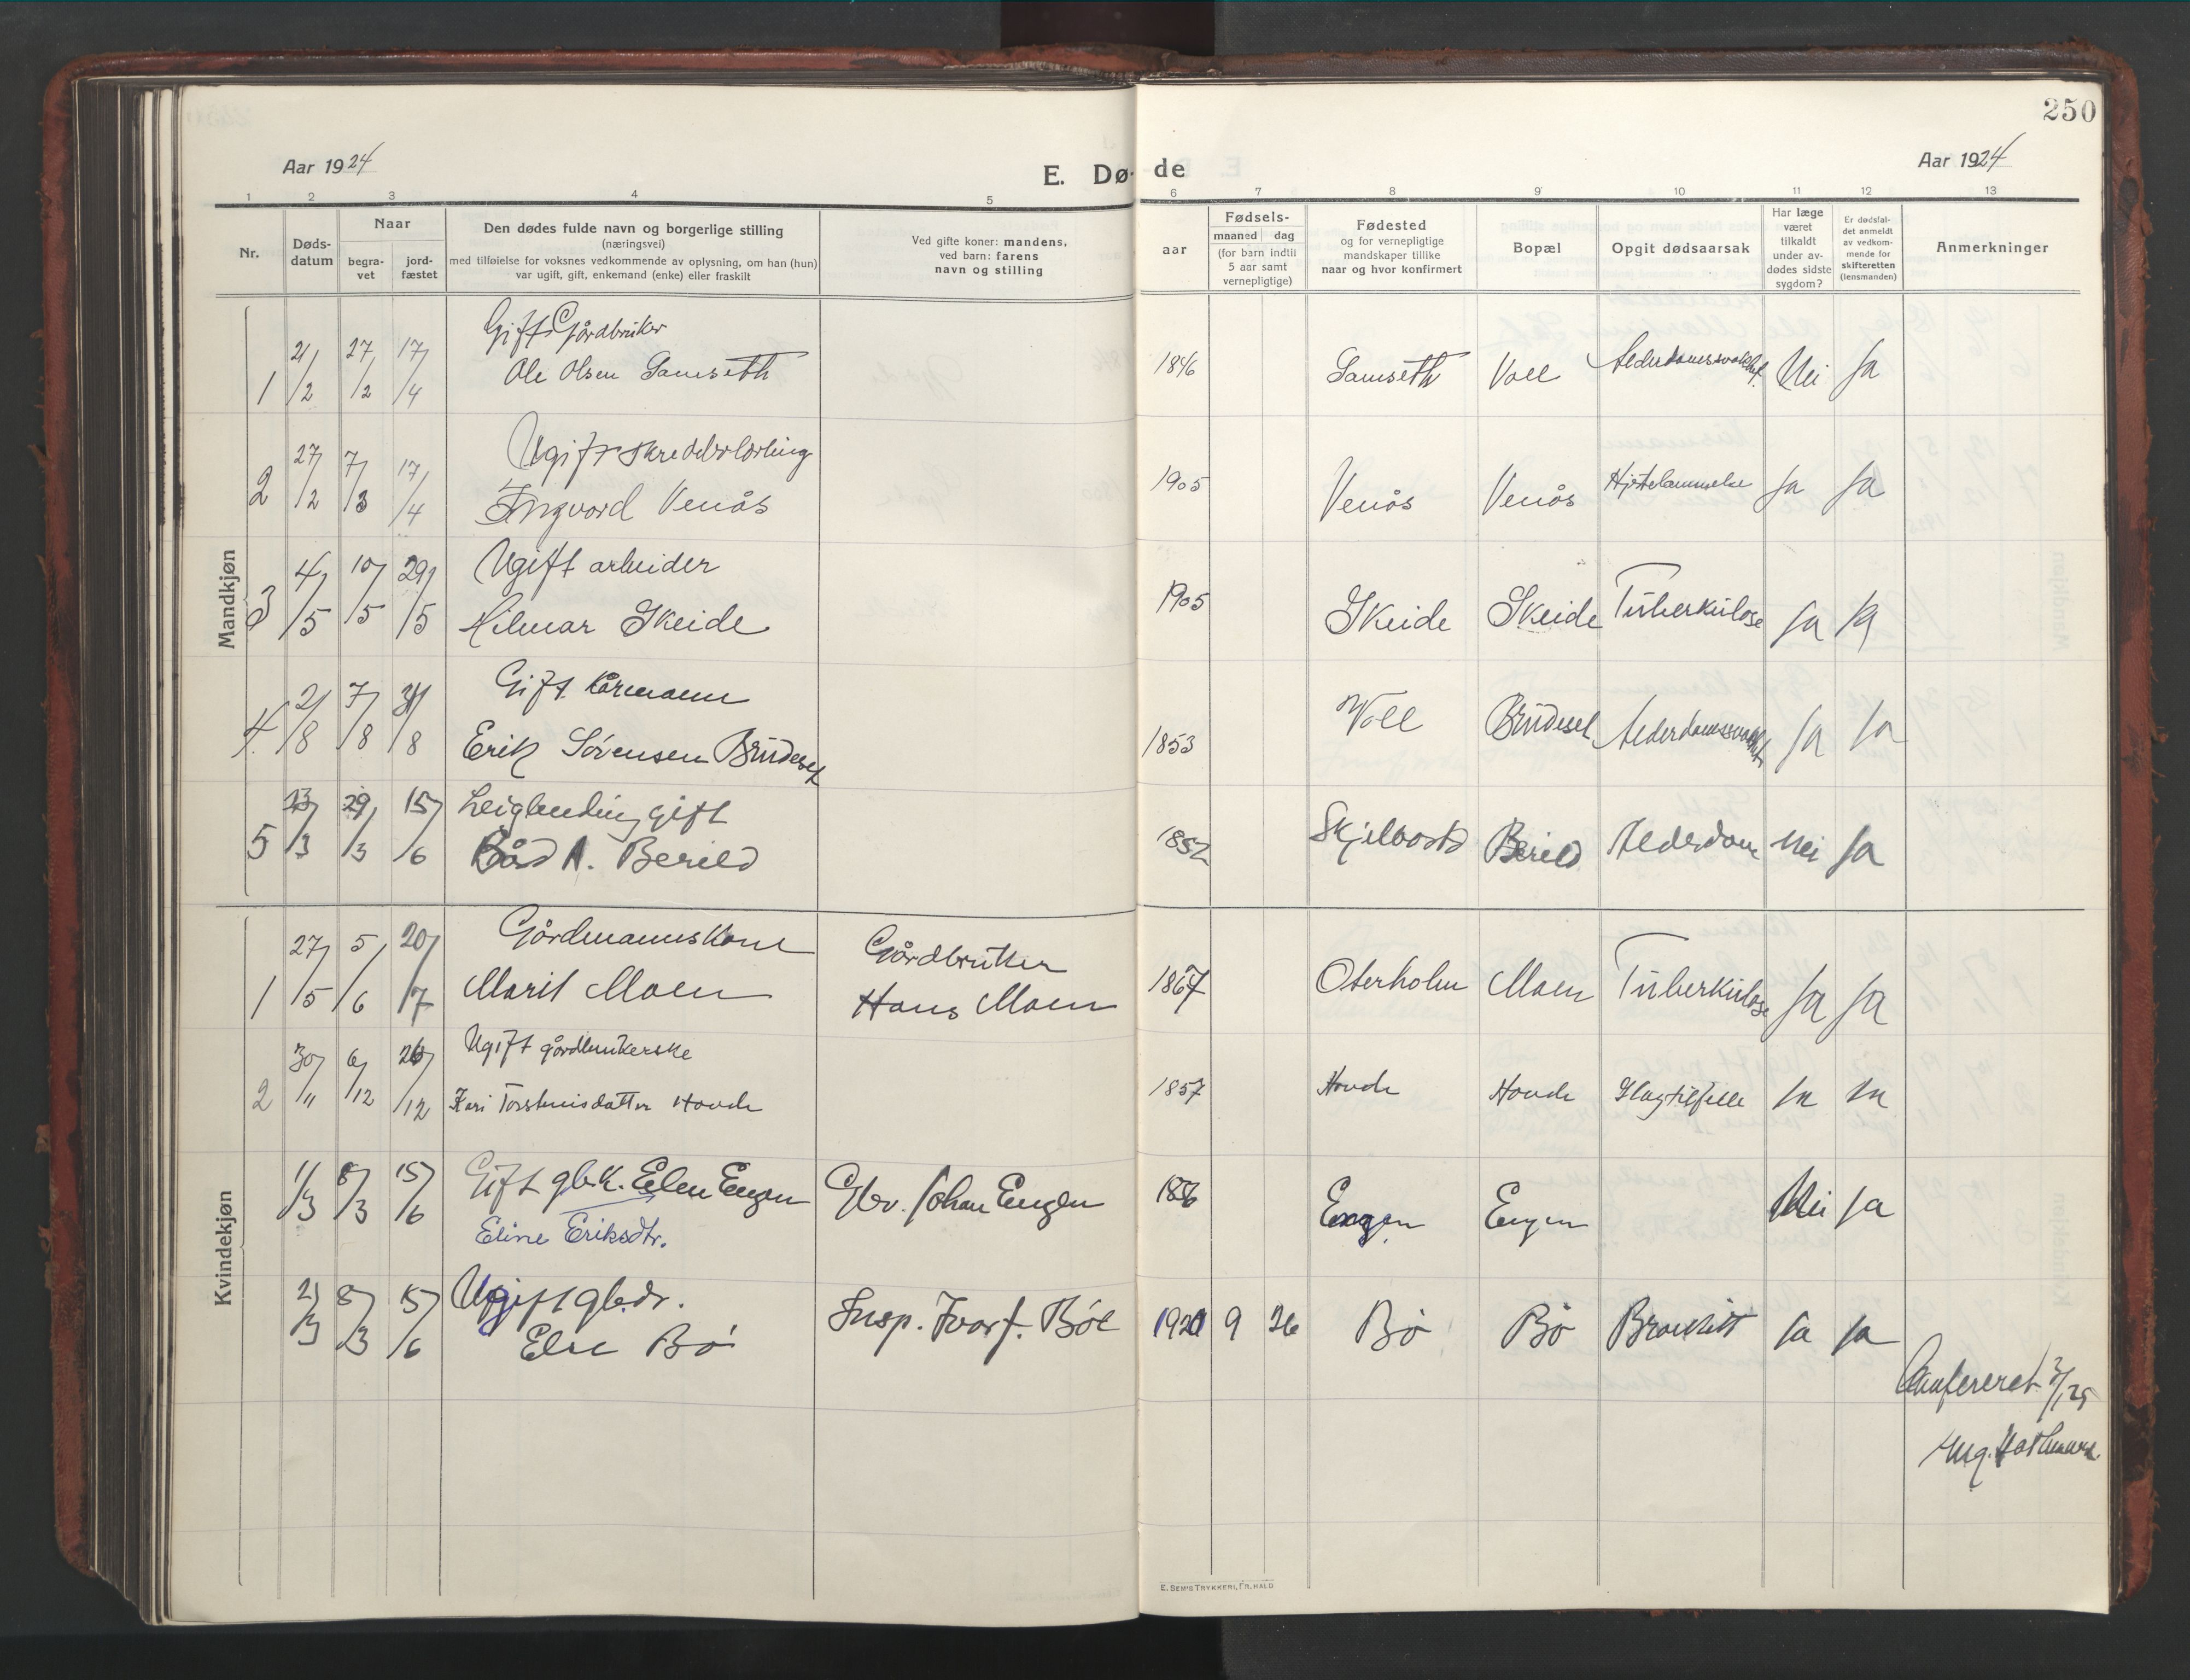 250
Aar 1924
E. Dø-
de
Aar 1924
1 2 3 4 5 6 7 8 9 10 11 12 13
Nr.
Døds-
datum
Naar
begra-
vet
jord-
fæstet
Den dødes fulde navn og borgerlige stilling
(næringsvei)
med tilføielse for voksnes vedkommende av oplysning, om han (hun)
var ugift, gift, enkemand (enke) eller fraskilt
Ved gifte koner: mandens,
ved barn: farens
navn og stilling
aar
Fødsels-
maaned dag
(for barn indtil
5 aar samt
vernepligtige)
Fødested
og for vernepligtige
mandskaper tillike
naar og hvor konfirmert
Bopæl
Opgit dødsaarsak
Har læge
været
tilkaldt
under av-
dødes sidste
sygdom?
Er dødsfal-
det anmeldt
av vedkom-
mende for
skifteretten
(lensmanden)
Anmerkninger
Mandkjøn
Gift Gårdbruker
1 21/2 27/2 17/4 Ole Olsen Samseth 1846 Samseth Voll Alderdomssvakhet Nei Ja
Ugift skredderlærling
2 27/2 7/3 17/4 Ingvard Venås 1905 Venås Venås Hjertelammelse Ja Ja
Ugift arbeider
3 4/5 10/5 29/5 Hilmar Skeide 1905 Skeide Skeide Tuberkulose Ja Ja
Gift kårmann
4 2/8 7/8 31/8 Erik Sørensen Brüdeset 1853 Voll Brüdeset Alderdomssvakhet Ja Ja
Leiglending gift
5 23/3 29/3 15/6 Bård A. Berild 1852 Berild Alderdom Nei Ja
Kvindekjøn
Gårdmannskone Gårdbruker
1 27/5 5/6 20/7 Marit Moen Hans Moen 1867 Oterholm Moen Tuberkulose Ja Ja
Ugift gårdbrukerske
2 30/11 6/12 26/12 Kari Torsteinsdatter Hovde 1857 Hovde Hovde Slagtilfelle Ja Ja
1/3 8/3 15/6 Gift gbk. Elen Engen Gbr. Johan Engen Engen Engen Nei Ja
Eline Eriksdtr.
Ugift gb.dr.
2/3 8/3 15/6 Else Bø Insp. Ivar J. Bøe 9 26 Bø Bø Bronkitt Ja Ja
Konfereret
E. SEM'S TRYKKERI, FR.HALD